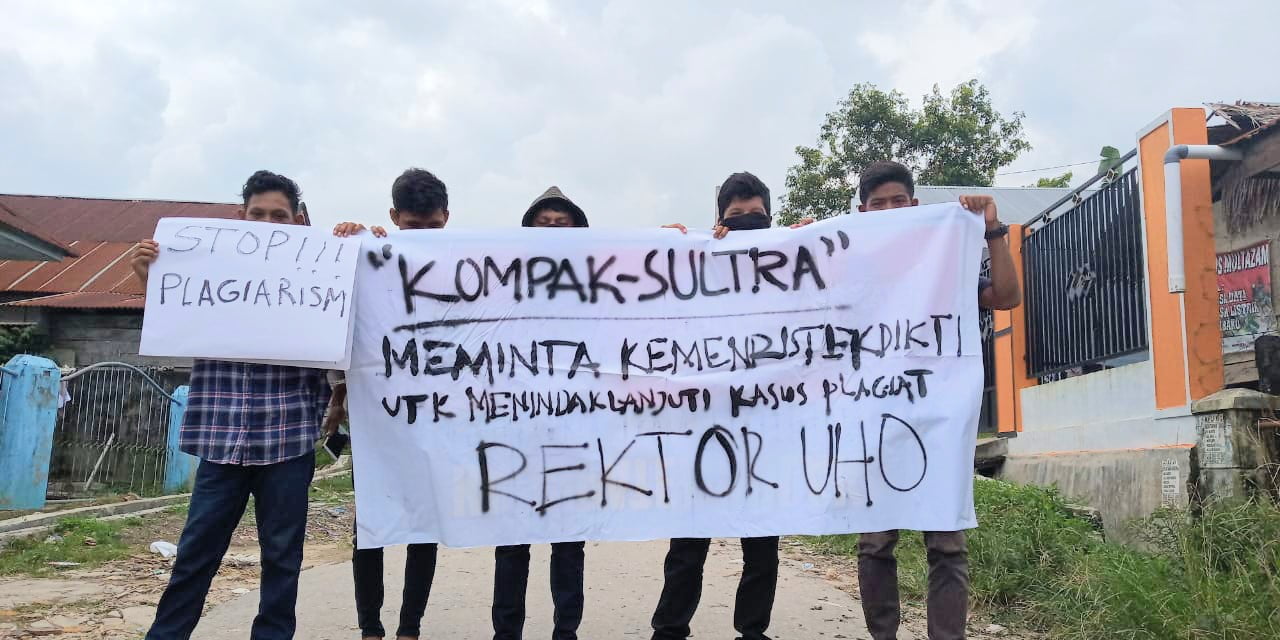 STOP!!!
PLAGIARISM
"KOMPAK-SULTRA"
MEMINTA KEMENRISTEKDIKTI
UTK MENINDAKLANJUTI KASUS PLAGIAT
REKTOR UHO
MULTAZAM